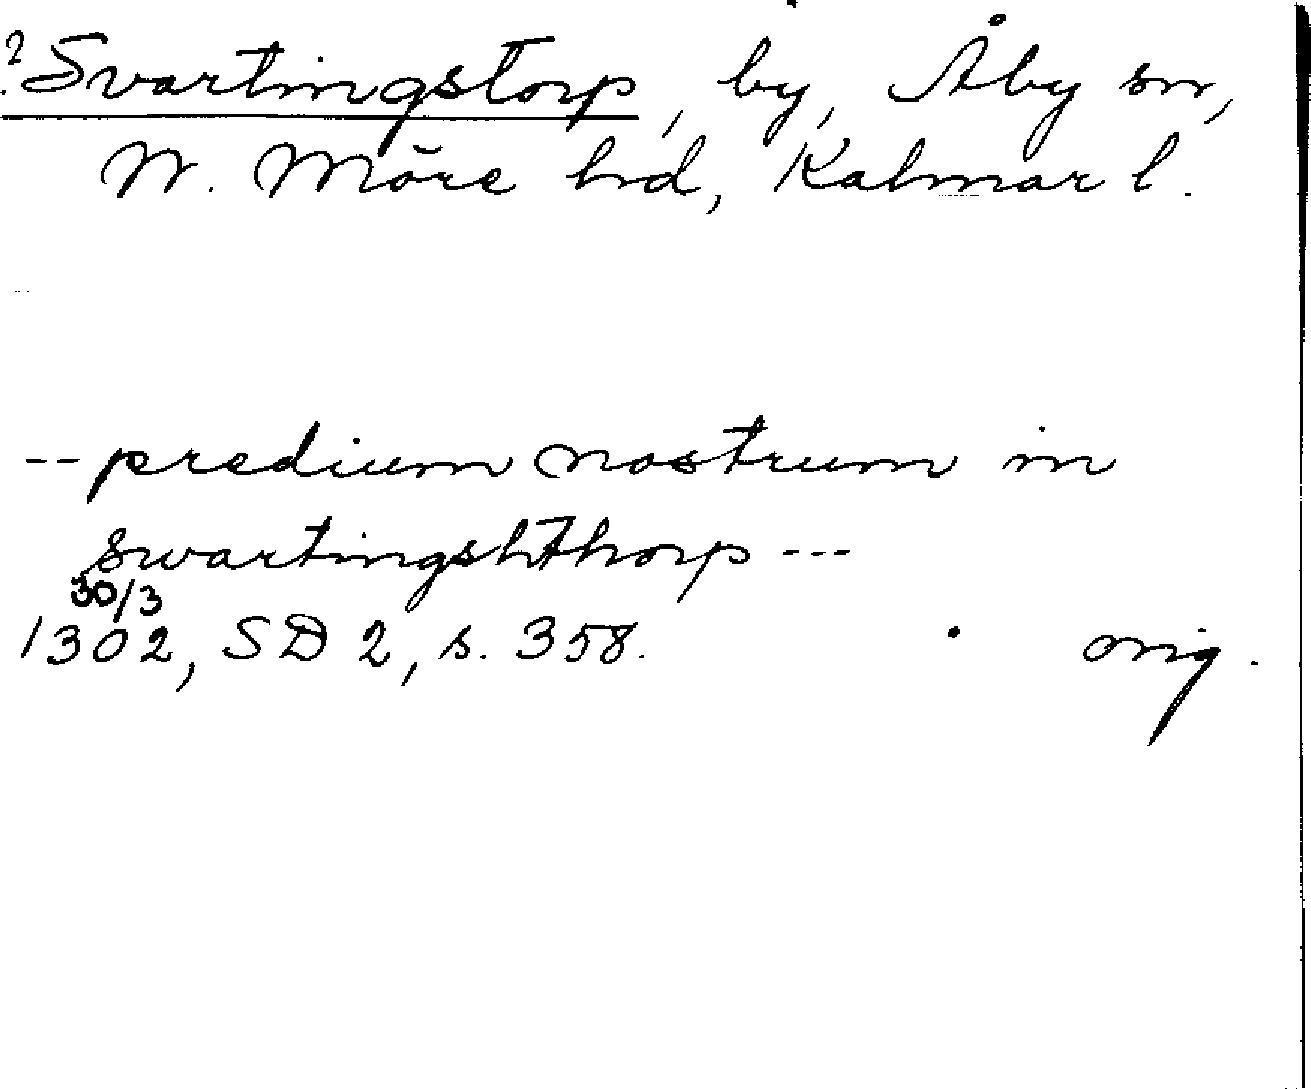 ? Svartingstorp, by, Åby sn,
N. Möre hd, Kalmar l.
-- predium nostrum in
swartingshthorp ---
30/3
1302, SD 2, s. 358. orig.